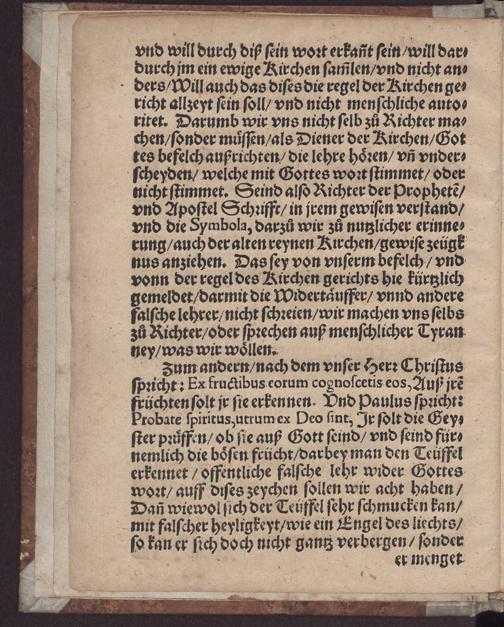 vnd will durch diß sein wort erkañt sein/will dar⸗
durch jm ein ewige Kirchen sam̃len/vnd nicht an⸗
ders/Will auch das dises die regel der Kirchen ge⸗
richt allzeyt sein soll/ vnd nicht menschliche auto⸗
ritet. Darumb wir vns nicht selb zů Richter ma⸗
chen/sonder müssen/als Diener der Kirchen/Got
tes befelch außrichten/ die lehre hören/ vñ vnder⸗
scheyden/ welche mit Gottes wort stimmet/ oder
nicht stimmet. Seind also Richter der Prophetē/
vnd Apostel Schrifft/ in jrem gewisen verstand/
vnd die Symbola, darzů wir zů nutzlicher erinne⸗
rung/auch der alten reynen Kirchen/gewise zeügk
nus anziehen. Das sey von vnserm befelch/ vnd
vonn der regel des Kirchen gerichts hie kürtzlich
gemeldet/darmit die Widertäuffer/ vnnd andere
falsche lehrer/nicht schreien/wir machen vns selbs
zů Richter/oder sprechen auß menschlicher Tyran
ney/was wir wöllen.
Zum andern/nach dem vnser Herr Christus
spricht: Ex fructibus eorum cognoscetis eos, Auß jrē
früchten solt jr sie erkennen. Vnd Paulus spricht:
Probate spiritus,utrum ex Deo sint, Jr solt die Gey⸗
ster prüffen/ ob sie auß Gott seind/ vnd seind für⸗
nemlich die bösen frücht/darbey man den Teüffel
erkennet/ offentliche falsche lehr wider Gottes
wort/ auff dises zeychen sollen wir acht haben/
Dañ wiewol sich der Teüffel sehr schmucken kan/
mit falscher heyligkeyt/wie ein Engel des liechts/
so kan er sich doch nicht gantz verbergen/ sonder
er menget